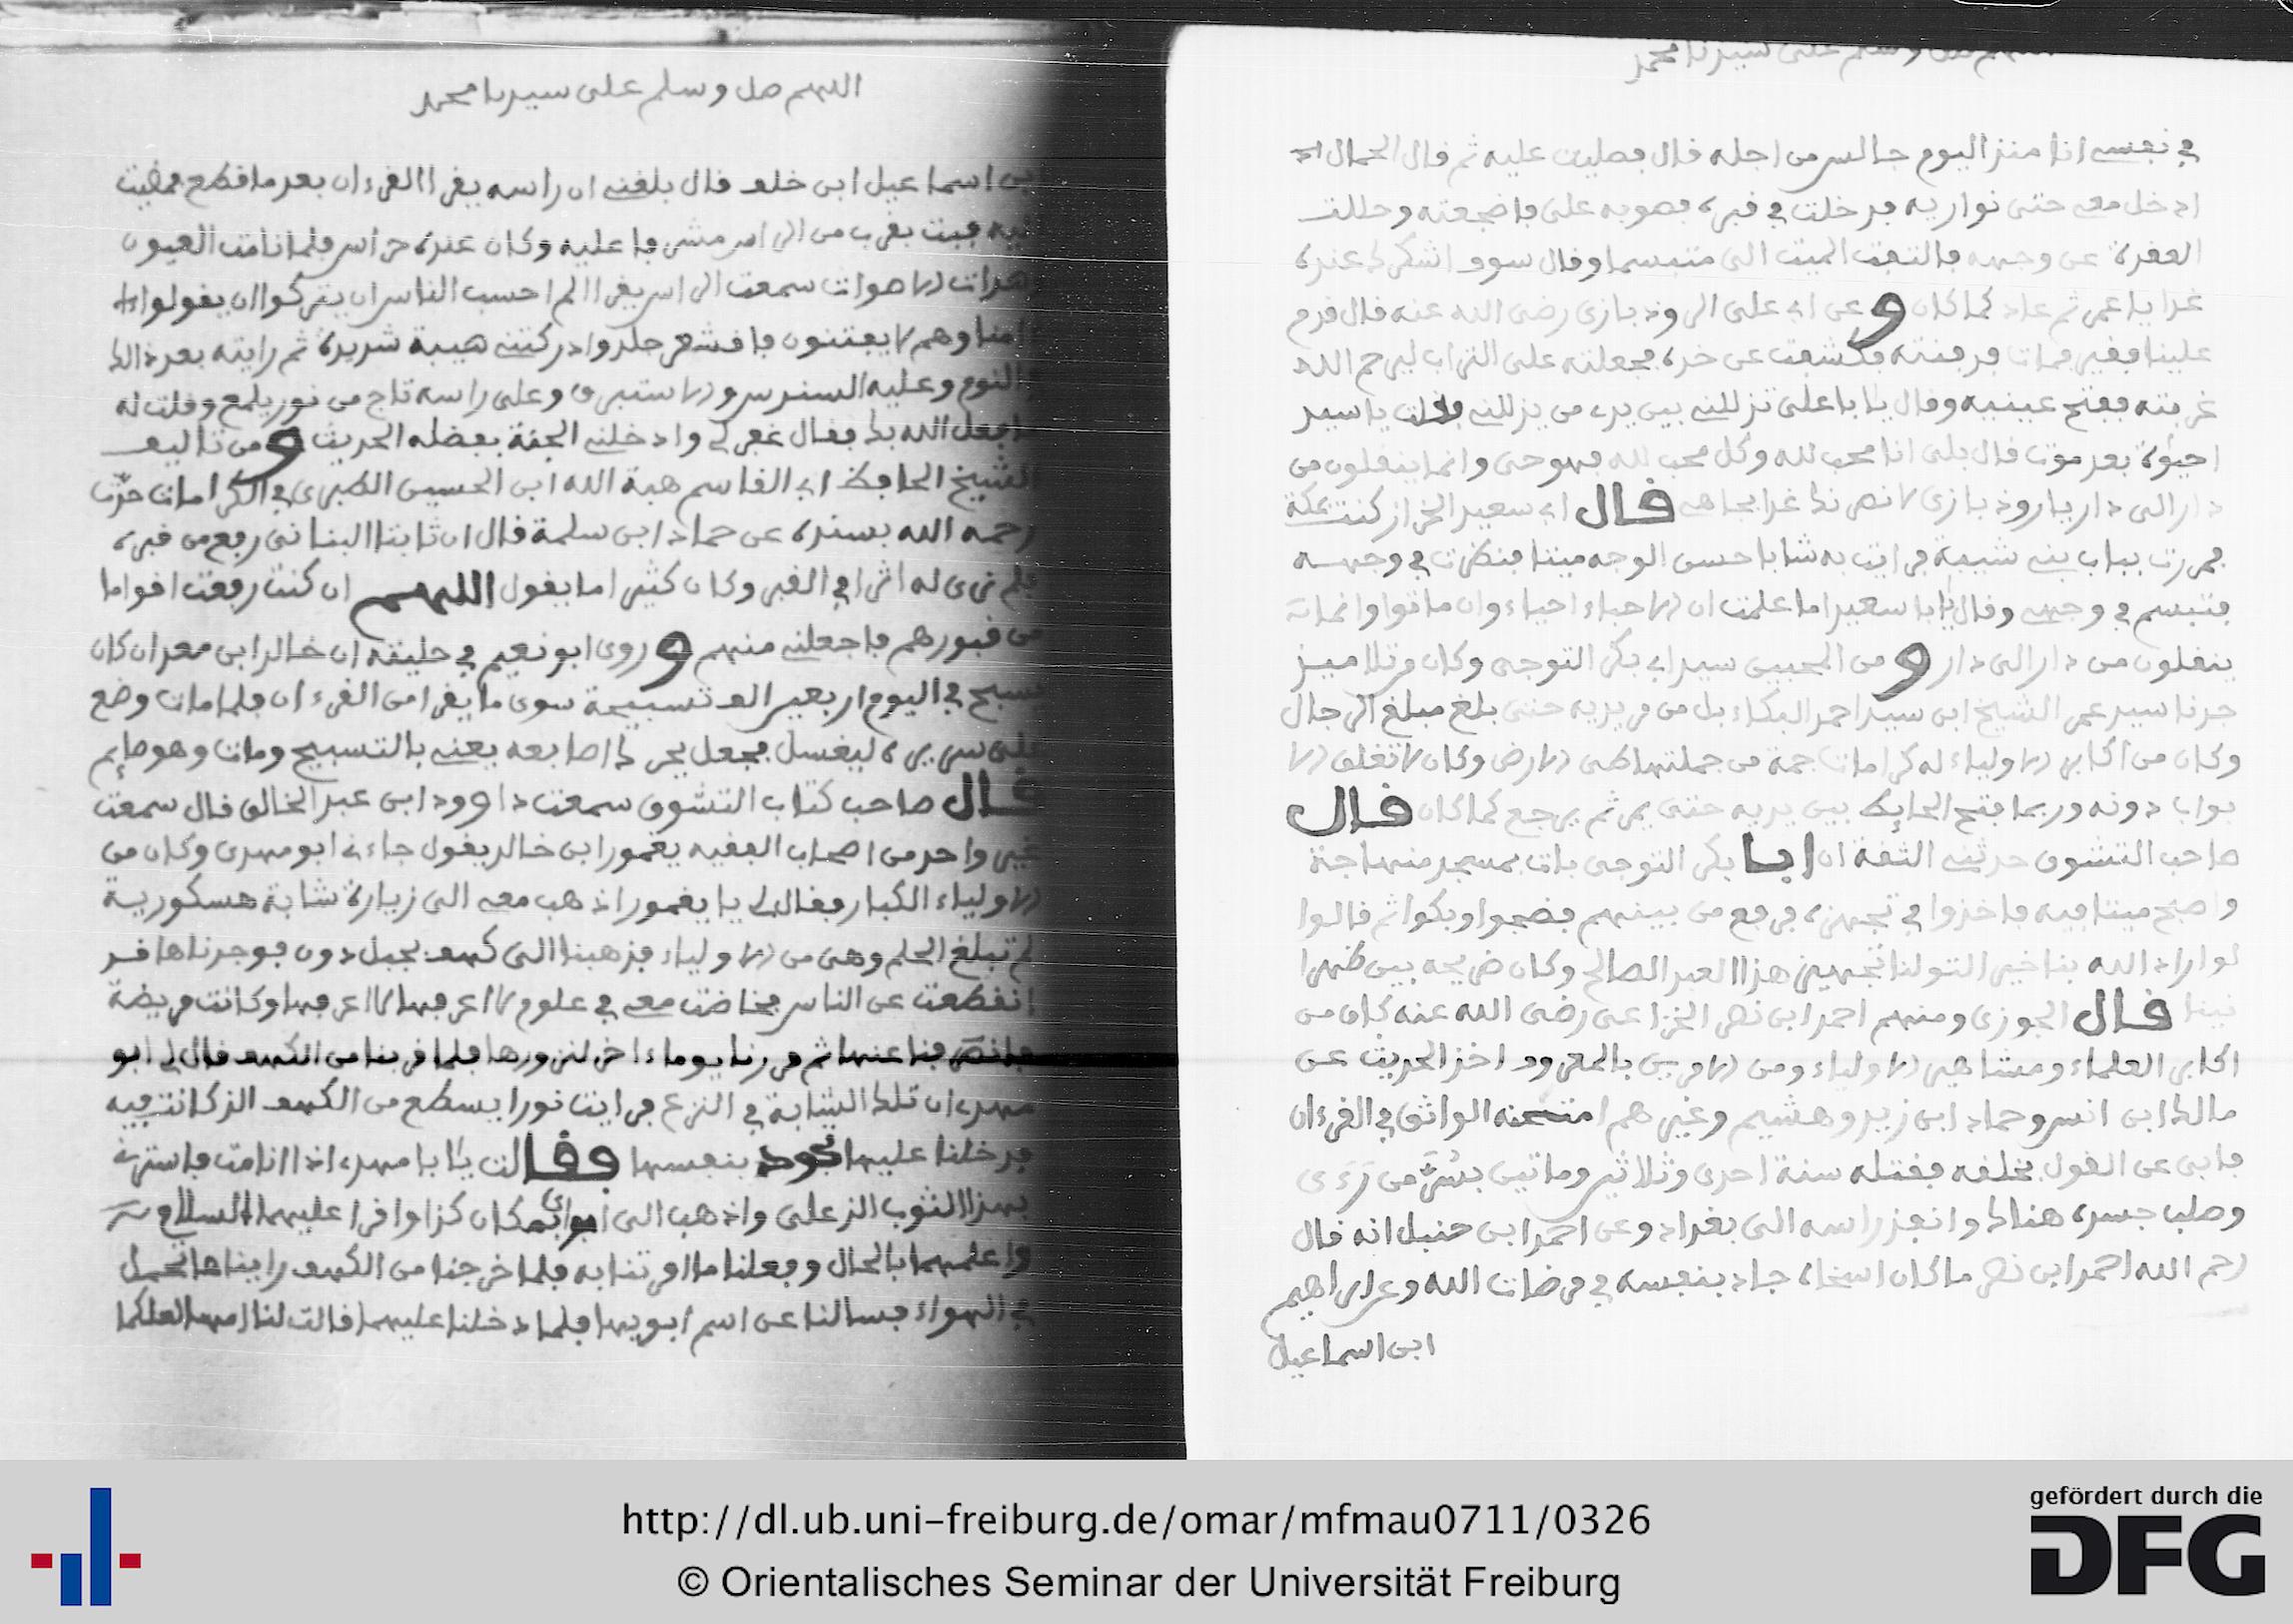 اللهم صل وسلم على سيدنا محمد
في نفسي انا منذ اليوم جالس من اجله قال فصليت عليه ثم قال الحمال
ادخل معي حتى نواريه فدخلت في قبره فصوبه على فاضجعته وحللت
العقدة عن وجهه فالتفت الميت الى متبسما وقال سوف اشكرك عنده
غدا يا عمى ثم عاد كما كان وعن ابى على الروذبازى رضى الله عنه قال قدم
علينا فقير فمات فدفنته فكشفت عن خده فجعلته على التراب ليرحم الله
غربته ففتح عينيه وقال يا ابا على تذللنى بين يدى من يذللنى فقلت يا سيد
احيوة بعد موت قال بلى انا محب لله وكل محب لله فهو حى وانما ينقلون من
دار الى دار يا روذبازى لانصرنك غدا بجاهى قال ابى سعيد الخراز كنت بمكة
فمررت بباب بنى شيبة فرايت به شابا حسن الوجه ميتا فنظرت في وجهه
فتبسم في وجهى وقال يا ابا سعيد اما علمت ان الاحباء احياء وان ماتوا وانما
ينقلون من دار الى دار ومن المحبين سيد ابى بكر التوجى وكان من تلاميذ
جدنا سيد عمر الشيخ ابن سيد احمد البكاء بل من مريديه حتى بلغ مبلغ الرجال
وكان من اكابر الاولياء له كرامات جمة من جملتها طى الارض وكان لا تغلق الا
بواب دونه وربما فتح الحايط بين يديه حتى يمر ثم يرجع كما كان قال
صاحب التشوف حدثنى الثقة ان ابا بكر التوجى بات بمسجد منها جنة
واصبح ميتا فيه فاخذوا في تجهيزه فرفع من بينهم فضجوا وبكوا ثم قالوا
لو اراد الله بنا خيرا لتولنا تجهيز هذا العبد الصالح وكان ضريحه بين ظهرا
نينا قال الجوزى ومنهم احمد ابن نصر الخزاعى رضى الله عنه كان من
اكابر العلماء ومشاهير الاولياء ومن الامرين بالمعروف اخذ الحديث عن
مالك ابن انس وحماد ابن زيد وهشيم وغيرهم امتحنه الواثق في القرءان
فابى عن القول بخلقه فقتله سنة احدى وثلاثين وماتين بسر من رءى
وصلب جسده هناك وانفذ راسه الى بغداد وعن احمد ابن حنبل انه قال
رحم الله احمد ابن نصر ما كان اسخاه جاد بنفسه في مرضات الله وعن ابراهيم
ابن اسماعيل
اللهم صل وسلم على سيدنا محمد
ابن اسماعيل ابن خلف قال بلغنى ان راسه يقرا القرءان بعد ما قطع فمضيت
اليه فبت بقرب من الراس مشرفا عليه وكان عنده حراس فلما نامت العيون
وهدات الاصوات سمعت الراس يقرا الم احسب الناس ان يتركوا ان يقولوا
ءامنا وهم لا يفتنون فاقشعر جلد وادركتنى هيبة شديدة ثم رايته بعد ذالك
في النوم وعليه السندس والاستبرق وعلى راسه تاج من نور يلمع وقلت له
ما فعل الله بك فقال غفر لى وادخلنى الجنة بفضله الحديث ومن تاليف
الشيخ الحافظ ابى القاسم هبة الله ابن الحسين الطبرى في الكرامات حدث
رحمه الله بسنده عن حماد ابن سلمة قال ان ثابتا البنانى رفع من قبره
فلم نرى له اثرا في القبر وكان كثيرا ما يقول اللهم ان كنت رفعت اقواما
من قبورهم فاجعلنى منهم وروى ابو نعيم في حليته ان خالد ابن معدان كان
يسبح في اليوم اربعين الف تسبيحة سوى ما يقرا من القرءان فلما مات وضع
على سريره ليغسل فجعل يحرك اصابعه يعنى بالتسبيح ومات وهو صايم
قال صاحب كتاب التشوف سمعت داوود ابن عبد الخالق قال سمعت
غير واحد من اصحاب الفقيه يغمور ابن خالد يقول جاءنى ابو مهدى وكان من
الاولياء الكبار فقال لى يا يغمور اذهب معى الى زيارة شابة هسكورية
لم تبلغ الحلم وهى من الاولياء فذهبنا الى كهف بجبل دون فوجدناها قد
انقطعت عن الناس فخاضت معى في علوم لا اعرفها لا اعرفها وكانت مريضة
فانصرفنا عنها ثم مررنا يوما ءاخر لنزورها فلما قربنا من الكهف قال لى ابو
مهدى ان تلك الشابة في النزع فرايت نورا يسطع من الكهف الذ كانت فيه
فدخلنا عليها تجود بنفسها وقالت يا ابا مهدى اذا انا مت فاسترنى
بهذا الثوب الذ على واذهب الى ابواى بمكان كذا واقرا عليهما السلام
واعلمهما بالحال وفعلنا ما امرتنا به فلما خرجنا من الكهف رايناها تحمل
في الهواء فسالنا عن اسم ابويها فلما دخلنا عليهما قالت لنا امها لعلكما
http://dl.ub.uni-freiburg.de/omar/mfmau0711/0326
© Orientalisches Seminar der Universität Freiburg
gefördert durch die
DFG